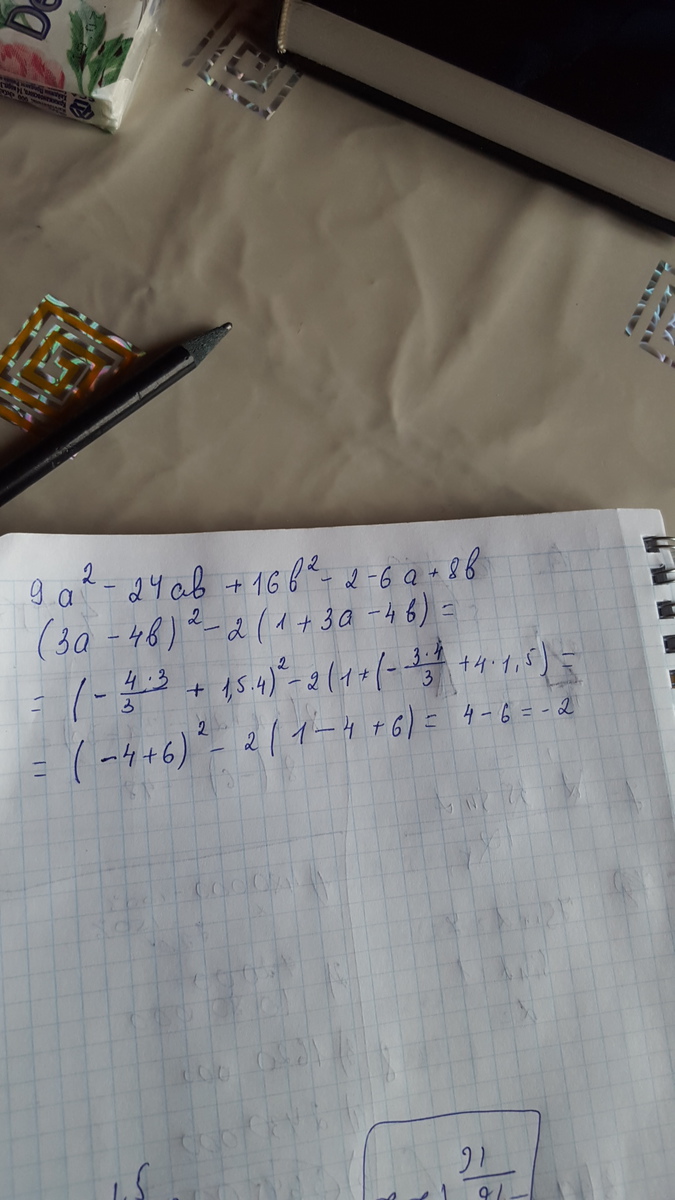 De
9a² - 24ab + 16b² - 2 - 6a + 8b
(3a - 4b)² - 2(1 + 3a - 4b) =
= (- \frac{4·3}{3} + 1,5·4)² - 2(1 + (- \frac{3·4}{3} + 4·1,5) =
= (-4+6)² - 2(1 - 4 + 6) = 4 - 6 = -2
1,5
16